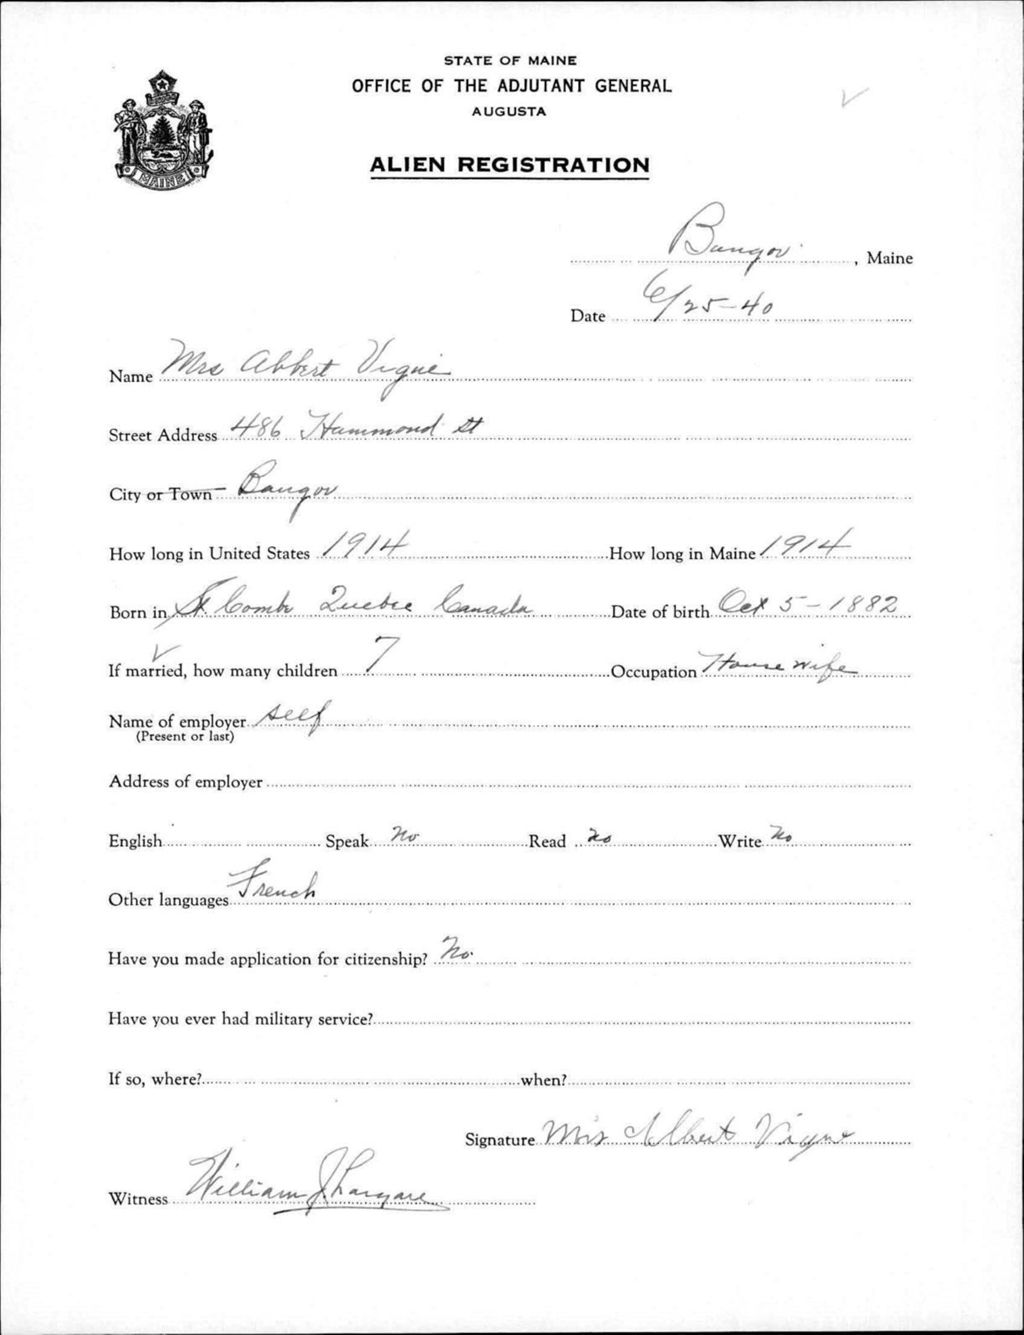 STATE OF MAINE
OFFICE OF THE ADJUTANT GENERAL
AUGUSTA
MAINE
ALIEN REGISTRATION
Bangor, Maine
Date 6/25-40
Name Mrs Albert Vigue
Street Address 486 Hammond St
City or Town Bangor
How long in United States 1914 How long in Maine 1914
Born in St Combe Quebec Canada Date of birth Oct 5-1882
If married, how many children 7 Occupation House wife
Name of employer self
(Present or last)
Address of employer
English Speak No Read No Write No
Other languages French
Have you made application for citizenship? No.
Have you ever had military service?
If so, where? when?
Signature Mrs Albert Vigue
Witness William J